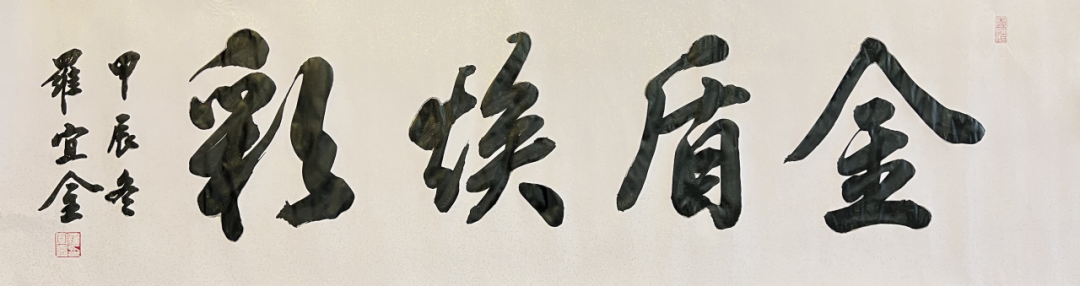 金盾焕彩
甲辰冬
羅宜金